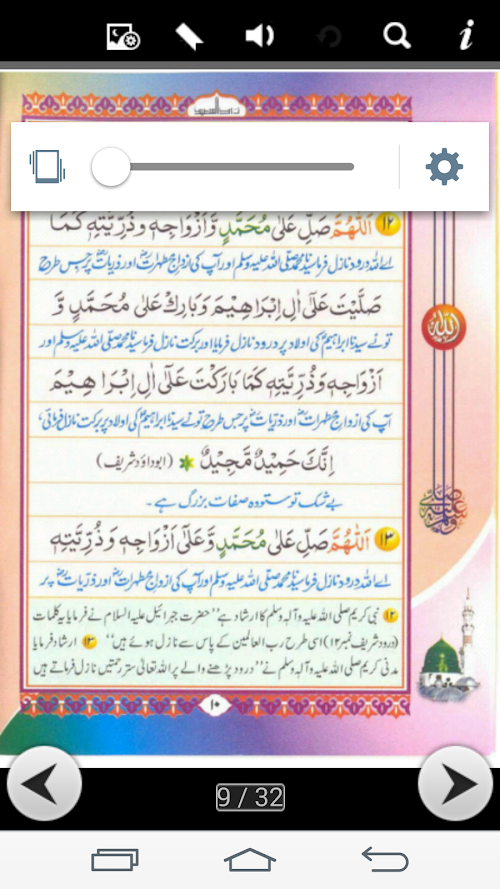 ۱۲ اَللّٰهُمَّ صَلِّ عَلٰى مُحَمَّدٍ وَّاَزْوَاجِهٖ وَذُرِّيَّتِهٖ كَمَا
اے اللہ درود نازل فرما سیدنا محمد صلی اللہ علیہ وسلم اور آپ کی ازواج مطہراتؓ اور ذریاتؓ پر جس طرح
صَلَّيْتَ عَلٰٓى اٰلِ اِبْرَاهِيْمَ وَبَارِكْ عَلٰى مُحَمَّدٍ وَّ
تو نے سیدنا ابراہیمؑ کی اولاد پر درود نازل فرمایا اور برکت نازل فرما سیدنا محمد صلی اللہ علیہ وسلم اور
اَزْوَاجِهٖ وَذُرِّيَّتِهٖ كَمَا بَارَكْتَ عَلٰٓى اٰلِ اِبْرَاهِيْمَ
آپ کی ازواج مطہراتؓ اور ذریاتؓ پر جس طرح تو نے سیدنا ابراہیمؑ کی اولاد پر برکت نازل فرمائی،
اِنَّكَ حَمِيْدٌ مَّجِيْدٌ (ابوداؤد شریف)
بے شک تو ستودہ صفات بزرگ ہے۔
۱۳ اَللّٰهُمَّ صَلِّ عَلٰى مُحَمَّدٍ وَّعَلٰٓى اَزْوَاجِهٖ وَذُرِّيَّتِهٖ
اے اللہ درود نازل فرما سیدنا محمد صلی اللہ علیہ وسلم اور آپ کی ازواج مطہراتؓ اور ذریاتؓ پر
۱۲ نبی کریم صلی اللہ علیہ وآلہ وسلم کا ارشاد ہے ”حضرت جبرائیل علیہ السلام نے فرمایا یہ کلمات
(درود شریف نمبر ۱۲) اسی طرح رب العالمین کے پاس سے نازل ہوئے ہیں“ ۱۳ ارشاد فرمایا
مدنی کریم صلی اللہ علیہ وآلہ وسلم نے ”درود پڑھنے والے پر اللہ تعالیٰ ستر رحمتیں نازل فرماتے ہیں
۱۰
اللہ
9 / 32